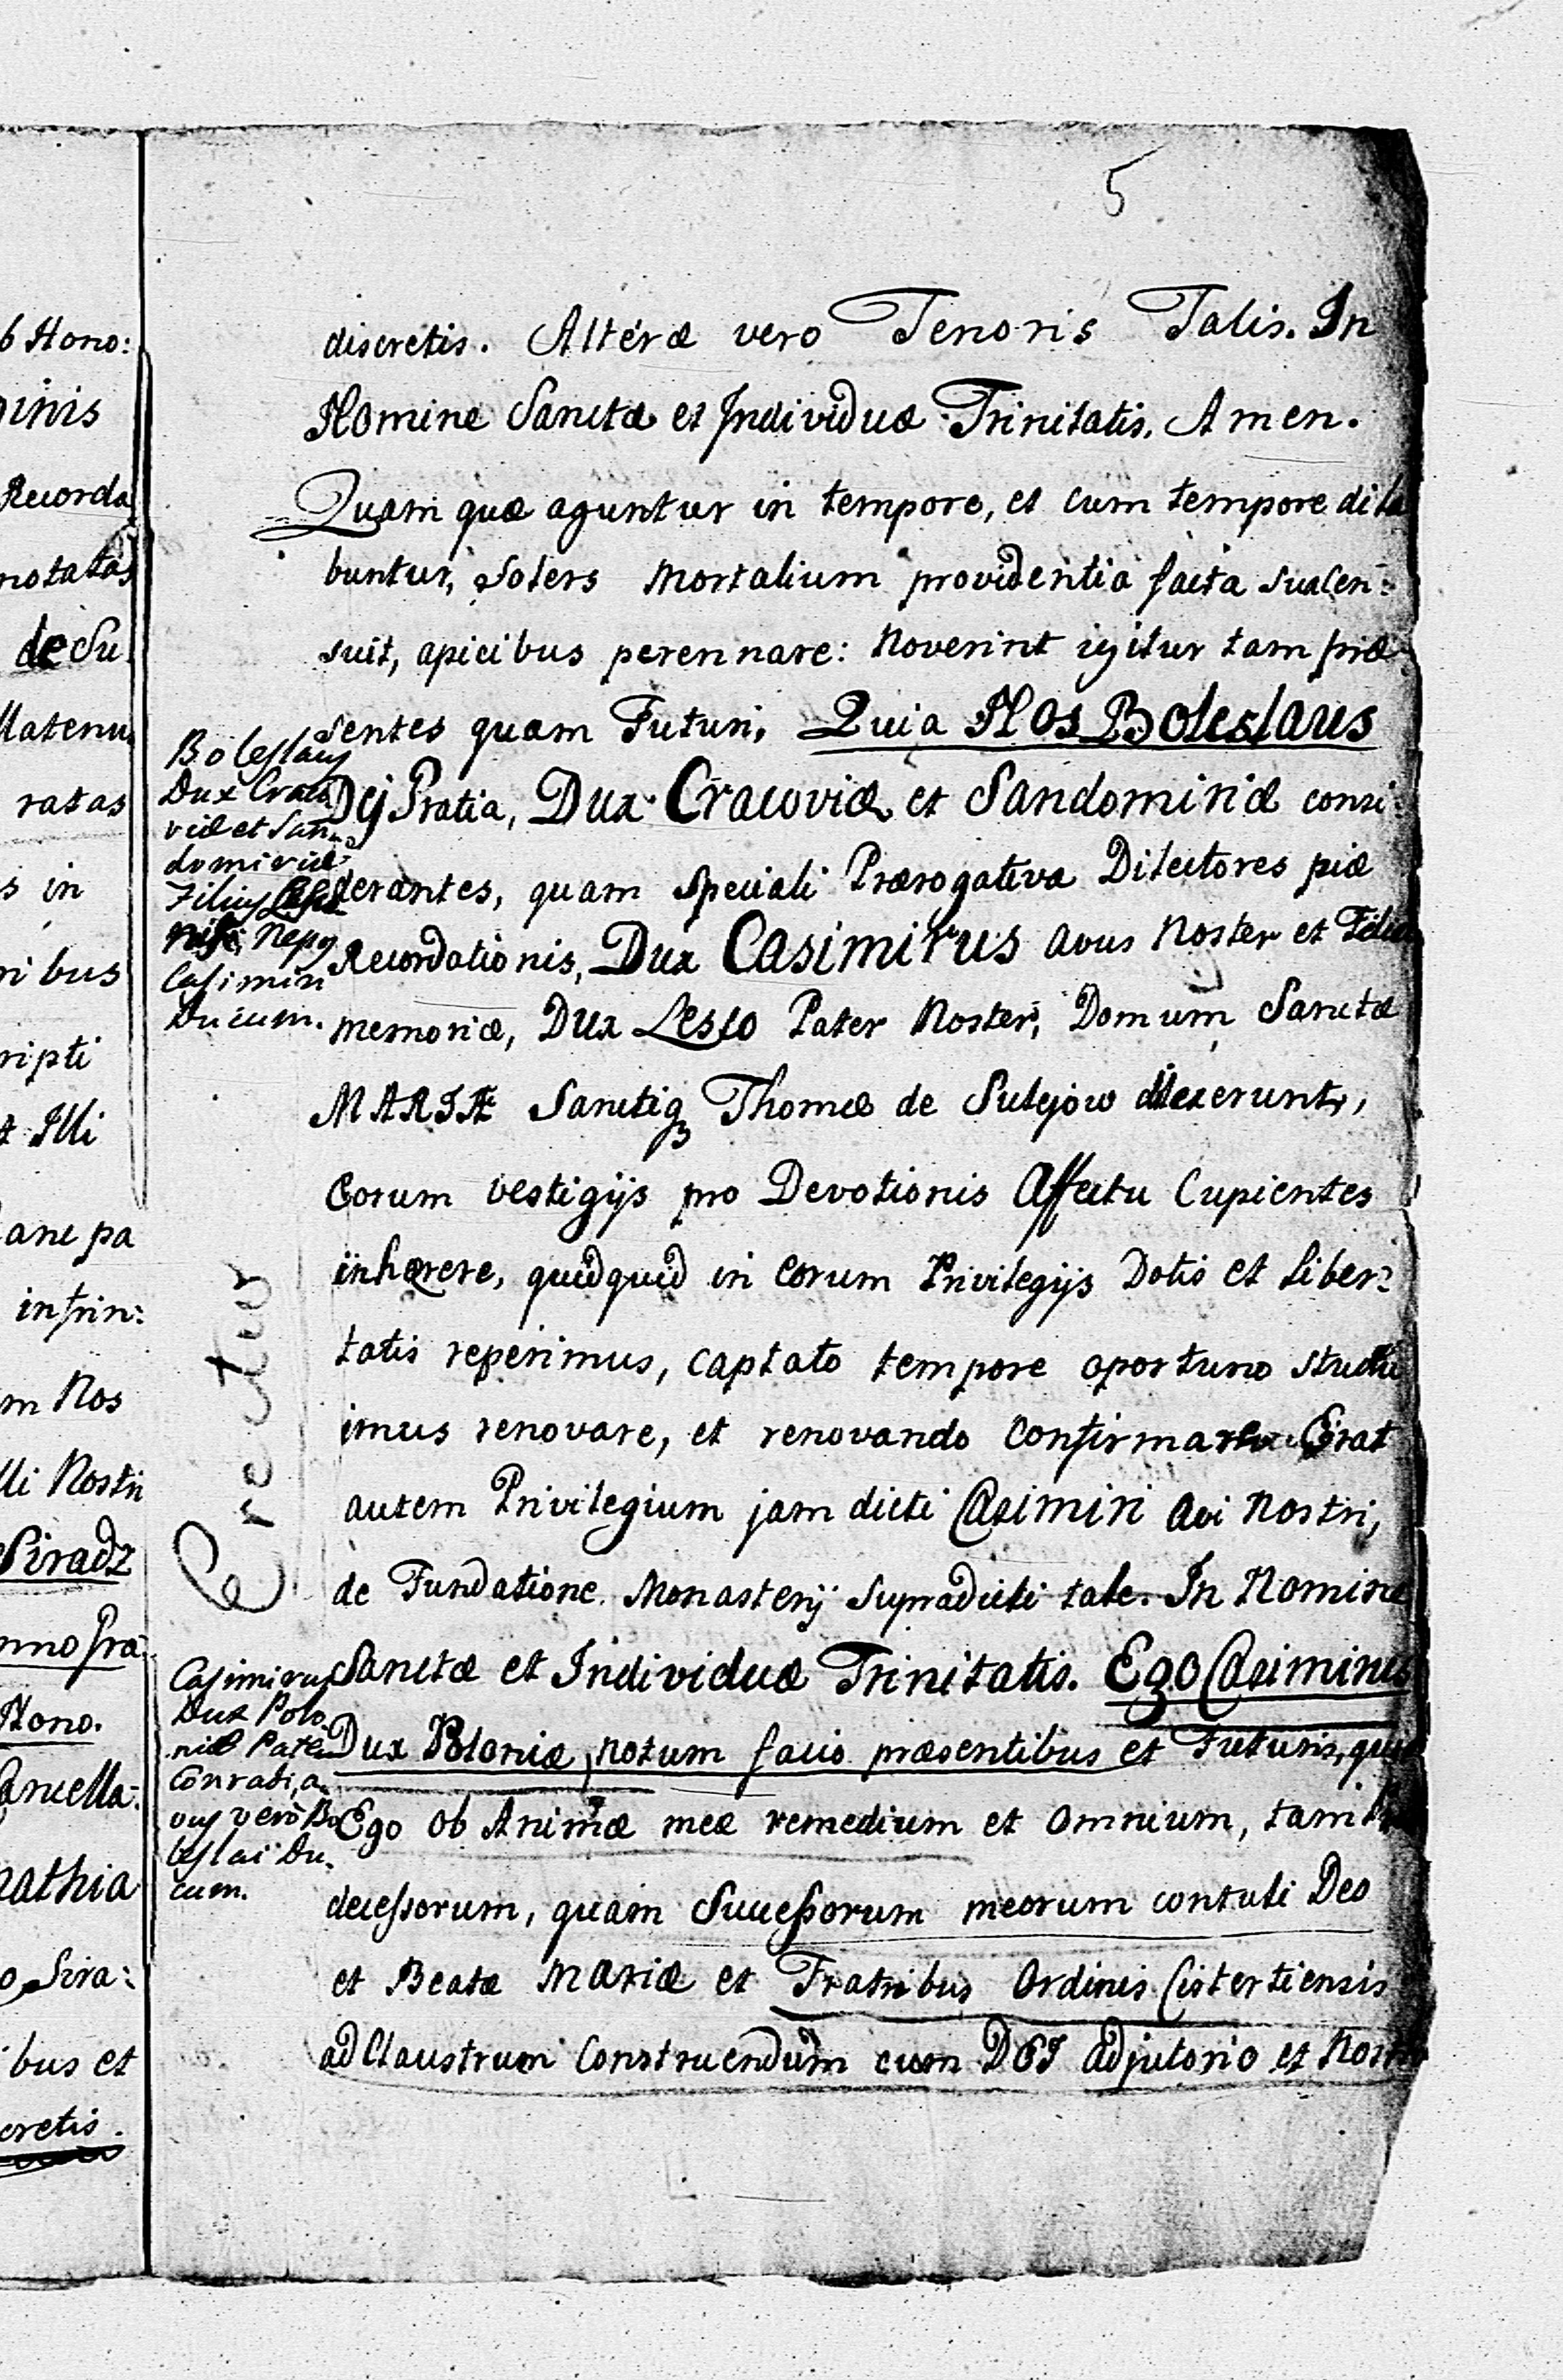 5
b Hono:
inis
Recorda
notatas
de Su
llatenu
ratas
s in
ribus
ripti
t Illi
ane pa
infrin:
m Nos
lli Nostri
Siradz
nno Græ
Hono.
Cancella:
athia
o Sira:
ibus et
cretis.
discretis. Alteræ vero Tenoris Talis. In
Nomine Sanctæ et Individuæ Trinitatis. Amen.
Quam quæ aguntur in tempore, et cum tempore dila
buntur, Solers Mortalium providentia facta sua Cen:
suit, apicibus perennare: Noverint igitur tam præ
sentes quam Futuri, Quia Nos Boleslaus
Dej Gratia, Dux Cracoviæ et Sandomiriæ consi:
derantes, quam Speciali Prærogativa Dilectores piæ
Recordationis, Dux Casimirus avus Noster et
memoriæ, Dux Lesco Pater Noster, Domum Sanctæ
MARIÆ Sanctiq Thomæ de Sulejow dilexerunt,
Eorum vestigijs pro Devotionis Affectu Cupientes
inhærere, quidquid in eorum Privilegijs Dotis et Liber:
tatis reperimus, captato tempore oportuno
imus renovare, et renovando Confirmare Erat
autem Privilegium jam dicti Casimiri Avi Nostri,
de Fundatione Monasterij Supradicti tale. In Nomine
Sanctæ et Individuæ Trinitatis. Ego Casimirus
Dux Poloniæ, notum facio præsentibus et Futuris,
Ego ob Animæ meæ remedium et omnium, tam
decessorum, quam Successorum meorum contuli Deo
et Beatæ Mariæ et Fratribus Ordinis Cistertiensis
ad Claustrum Construendum cum DEI adjutorio et
Boleslaus
Dux Craco
viæ et San
domiriæ
Filius
Nepos
Casimiri
Ducum.
Erectus
Casimirus
Dux Polo
niæ Pater
Conradi, a
vus vero Bo
leslai Du
cum.